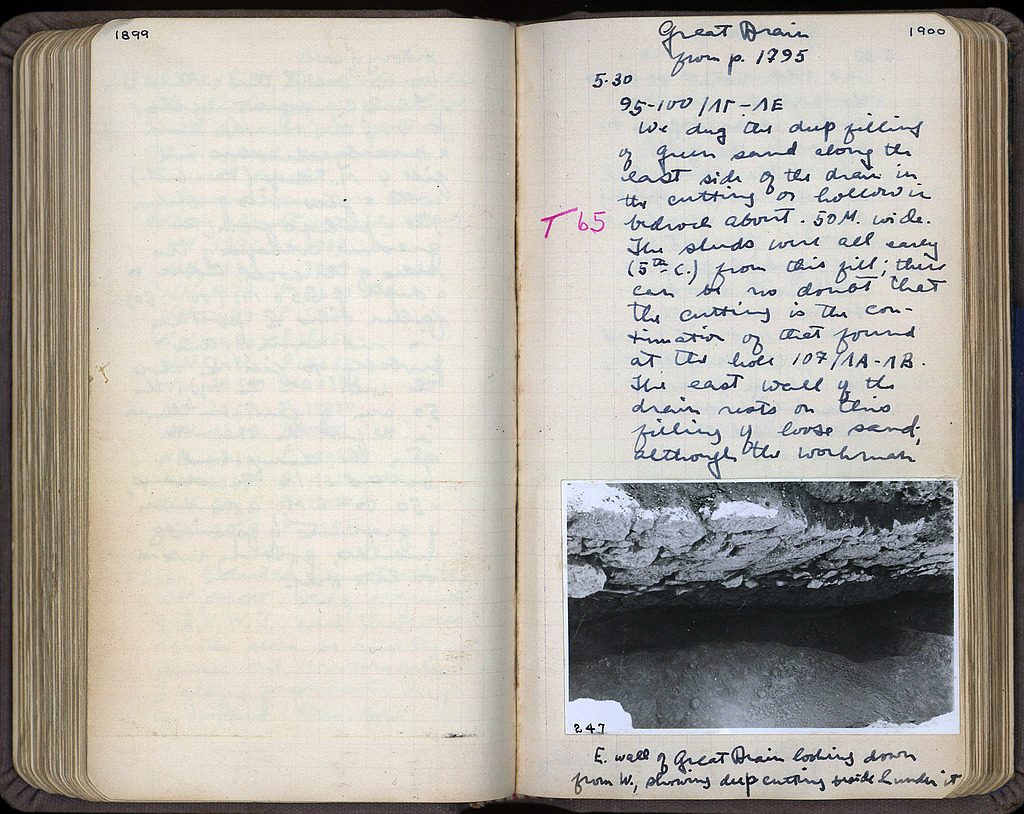 1899
1900
Great Drain
from p. 1795
5-30
95-100/ΛΓ-ΛΕ
We dug the deep filling
of green sand along the
east side of the drain in
the cutting or hollow in
bedrock about .50M. wide.
T 65
The sherds were all early
(5th C.) from this fill; there
can be no doubt that
the cutting is the con-
tinuation of that found
at the hole 107/ΛΑ-ΛΒ.
The east wall of the
drain rests on this
filling of loose sand,
although the workman
247
E. wall of Great Drain looking down
from W., showing deep cutting beside & under it